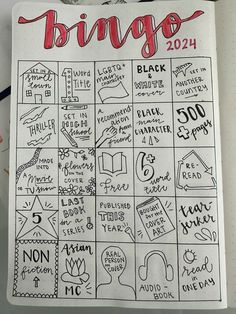 bingo
2024
SET IN
small
TOWN
1 Word
TITLE
LGBTQ+
main
character
BLACK
& WHITE
cover
SET IN
ANOTHER
COUNTRY
THRILLER
SET IN
HIGH
school
recommendation
from
BLACK
main
CHARACTER
500
+pages
MADE
INTO
a Movie
OR TV SHOW
flowers
ON THE
COVER
free
6+
word
titles
RE-
READ
5
LAST
BOOK
in a
SERIES
PUBLISHED
THIS
YEAR
BOUGHT
for the
COVER
ART
tear
jerker
NON
fiction
Asian
MC
REAL
PERSON
ON
COVER
AUDIO-
BOOK
read
in ONE
DAY